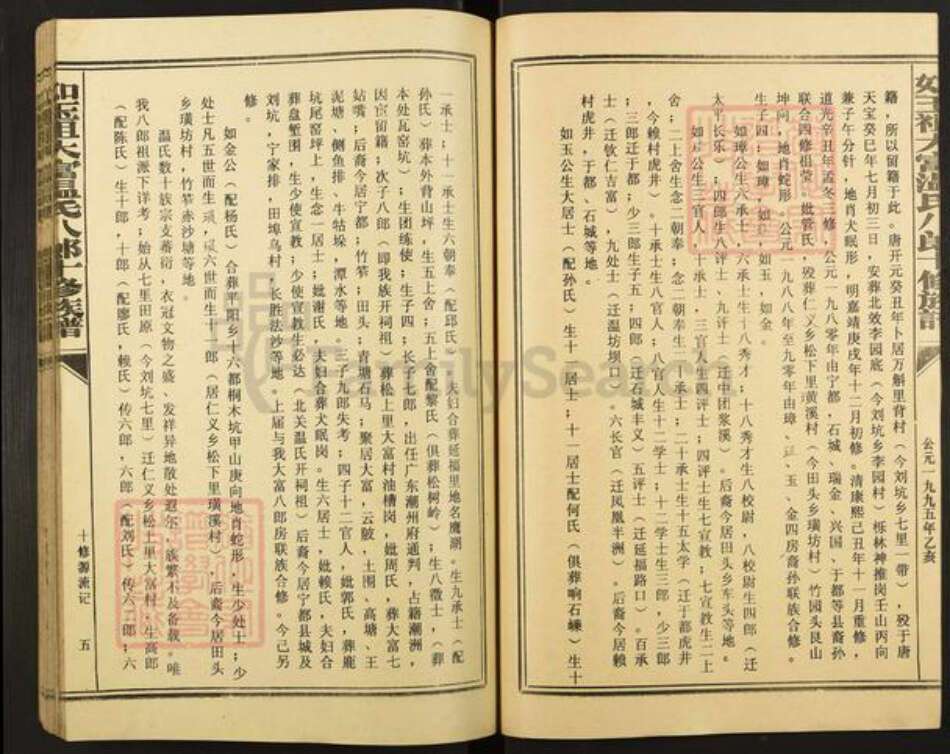 籍，所以留籍于此。唐开元癸丑年卜居万斛里背村（今刘坑乡七里一带），殁于唐
天宝癸巳年七月初三日，安葬北效李园底（今刘坑乡李园村）栎林神推岗壬山丙向
兼子午分针，地肖犬眠形，明嘉靖庚戌年十二月初修。清康熙己丑年十一月重修，
道光辛丑年孟冬三修，公元一九八〇年由宁都，石城，瑞金、兴国、于都等县裔孙
联合四修祖茔，妣管氏，殁葬仁义乡松下里黄溪村（今田头乡璜坊村）竹园头艮山
坤向，地肖蛇形。公元一九八八年至九零年由璋、玨、玉、金四房裔孙联族合修。
生子四；如璋，如玨，如玉，如金。
如璋公生六承士，六承士生十八秀才；十八秀才生八校尉，八校尉生四郎（迁
太平长乐）；四郎生八评士，九评士（迁中团浆溪）。后裔今居田头乡车头等地。
如玨公生三官人，十承士，三官人生四评士；四评士生七宣教；七宣教生二上
舍；二上舍生念二朝奉；念二朝奉生二十承士；二十承士生十五太学（迁于都虎井
，今赖村虎井）。十承士生八官人；八官人生十二学士；十二学士生三郎，少三郎
；三郎迁于都；少三郎生子五；四郎（迁石城丰义）五评士（迁延福路口）。百承
士（迁钦仁吉富），九处士（迁温坊坝口）。六长官（迁凤凰半洲）。后裔今居赖
村虎井，于都、石城等地。
如玉公生大居士（配孙氏）生十一居士；十一居士配何氏（俱葬响石嵊）生十
公元一九九五年乙亥
一承士；十一承士生六朝奉（配邱氏），夫妇合葬延福里地名鹰湖。生九承士（配
孙氏）葬本外背山坪，生五上舍；五上舍配黎氏（俱葬松树岭）；生八徵士，（葬
本处瓦窑坑）；生团练使；生子四；长子七郎，出任广东潮州府通判，占籍潮洲，
因官留籍；次子八郎（即我族开祠祖）葬松上里大富村油槽岗，妣周氏，葬大富七
姑嘴；后裔今居宁都；竹筀；田头；青塘石马；聚居大富，云陂，土围、高塘、王
泥塘、侧鱼排、牛牯垛，潭水等地。三子九郎失考；四子十二官人，妣郭氏，葬鹿
坑尾窑坪上，生念一居士；妣谢氏，夫妇合葬犬眠岗。生六居士，妣赖氏，夫妇合
葬盘堑围，生少使宣教；少使宣教生必达（北关温氏开祠祖）后裔今居宁都县城及
刘坑，宁家排，田埠乌村、长胜法沙等地。上届与我大富八郎房联族合修。今己另
修。
如金公（配杨氏）合葬平阳乡十六都桐木坑甲山庚向地肖蛇形，生少处士；少
处士凡五世而生顽，顽六世而生十郎（居仁义乡松下里璜溪村），后裔今居田头
乡璜坊村，竹筀赤沙塘等地。
温氏数十族宗支蕃衍，衣冠文物之盛、发祥异地散处遐尔，族繁不及备载。唯
我八郎祖派下详考；始从七里田原（今刘坑七里）迁仁义乡松上里大富村，生高郎
（配陈氏）生十郎，十郎（配廖氏，赖氏）传六郎，六郎（配刘氏）传六一郎；六
十修源流记
五
FamilySearch